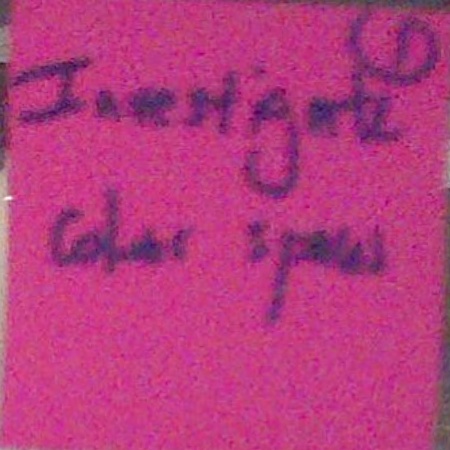 Investigate
Color spaces